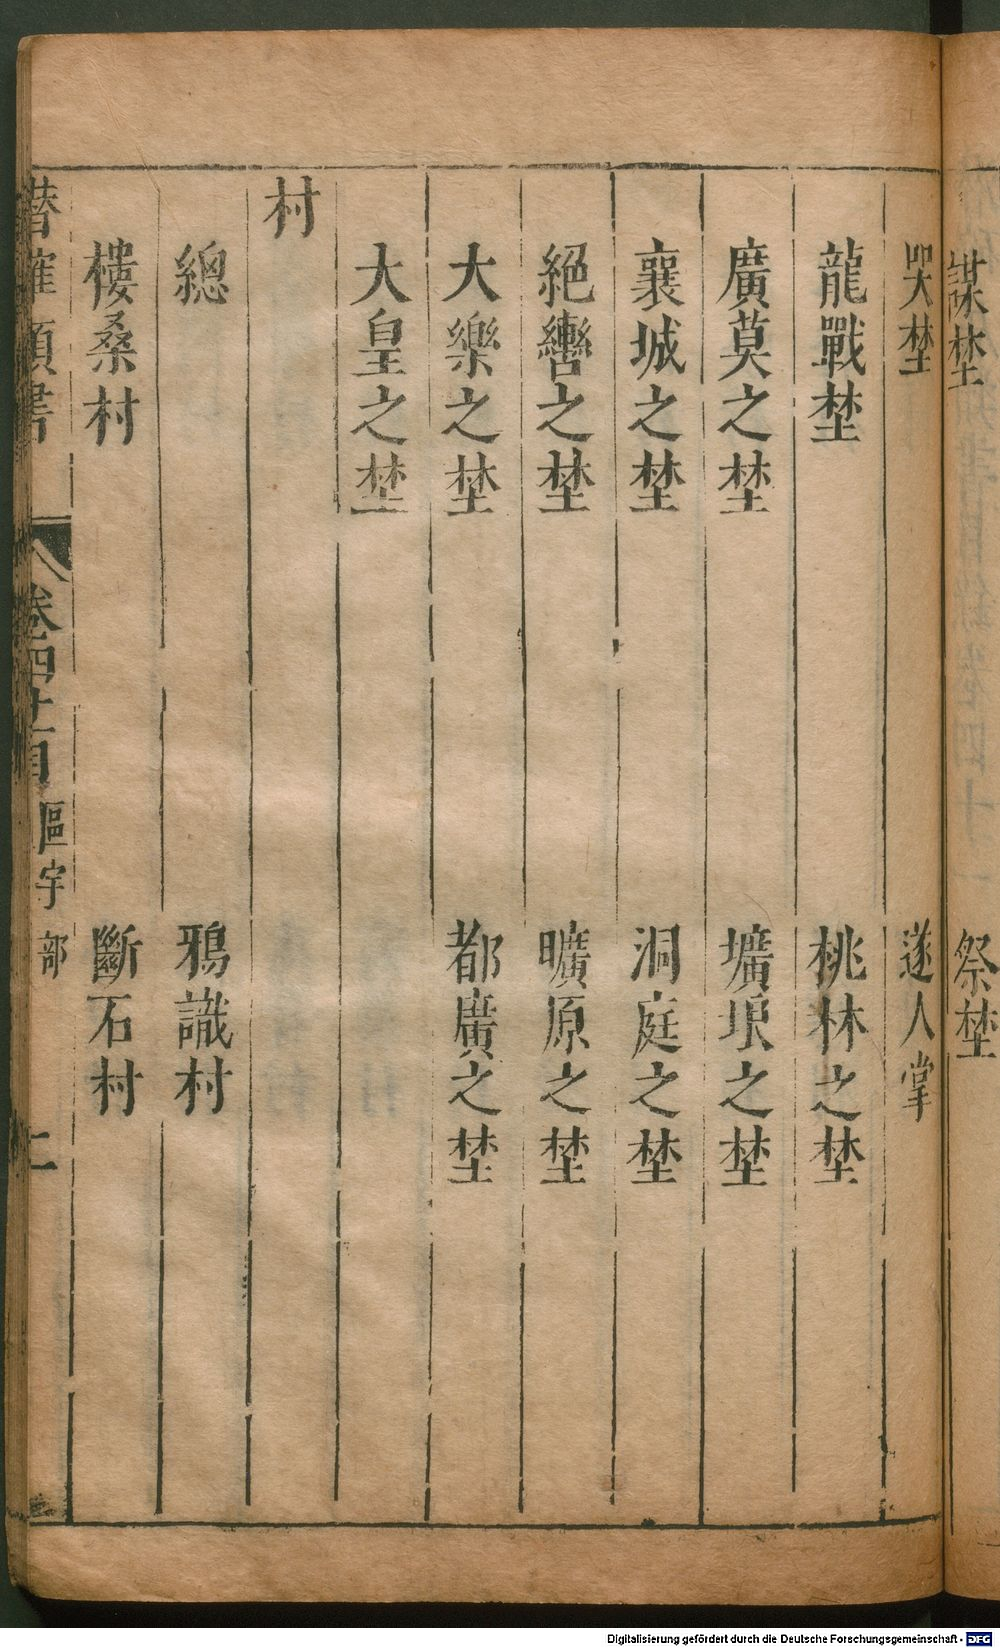 謀埜　祭埜
哭埜　遂人掌
龍戰埜　桃林之埜
廣莫之埜　壙埌之埜
襄城之埜　洞庭之埜
絕轡之埜　曠原之埜
大樂之埜　都廣之埜
大皇之埜
村
總　鴉識村
樓桑村　斷石村
潛確類書　卷四十一目　區宇部　二
Digitalisierung gefördert durch die Deutsche Forschungsgemeinschaft - DFG